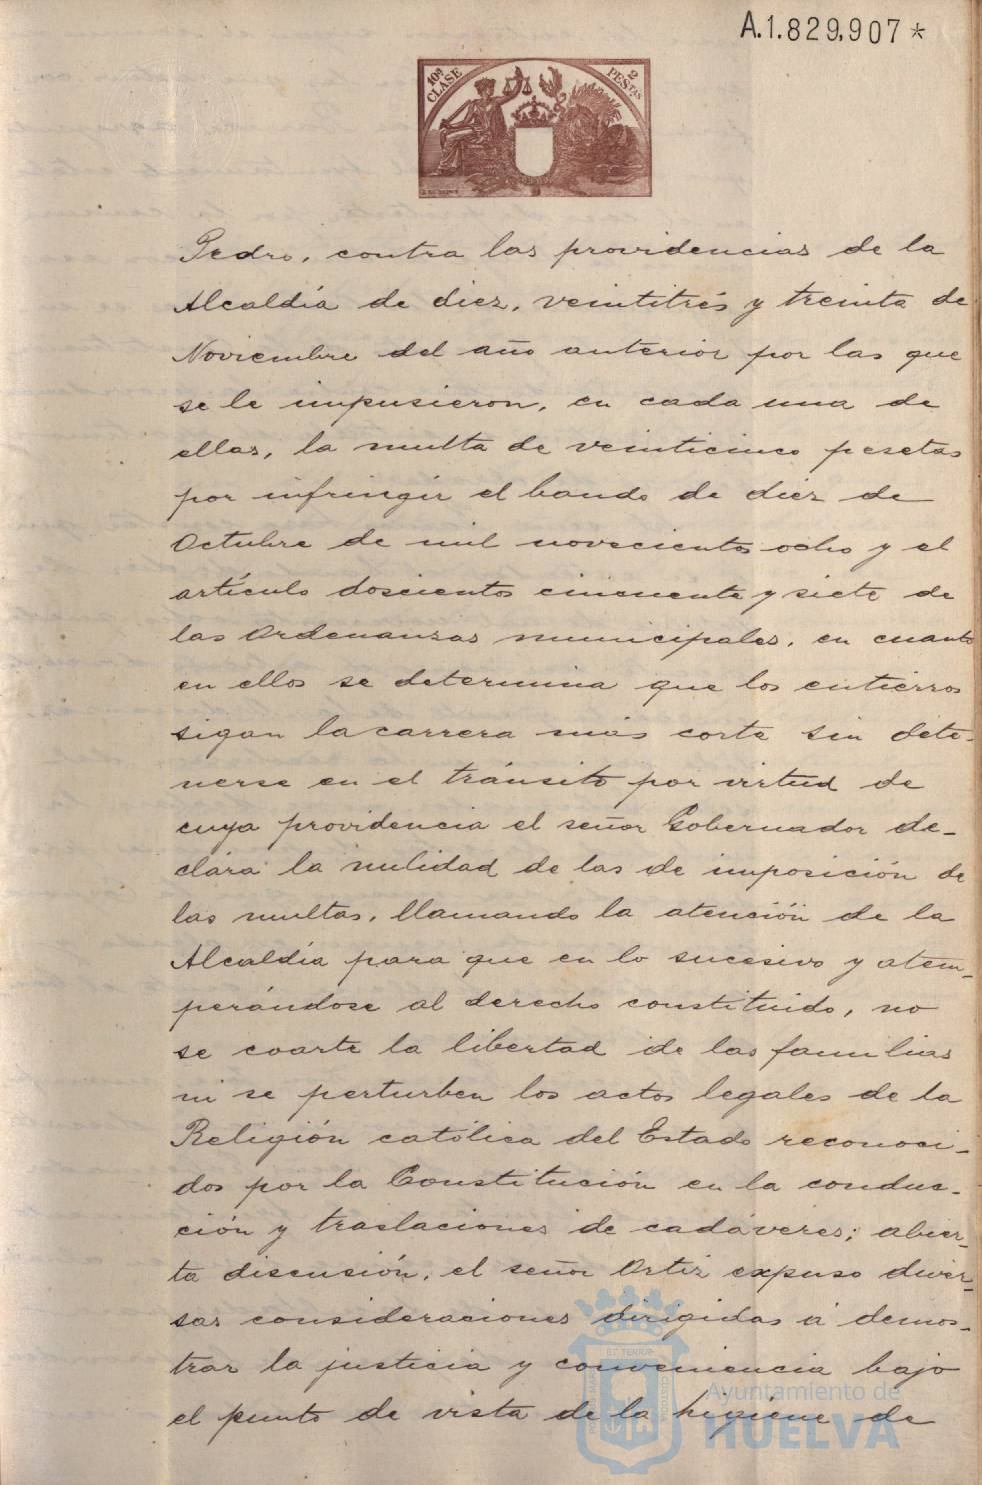 A.1.829,907*
10ª CLASE
2 PESTAS
Pedro, contra las providencias de la
Alcaldía de diez, veintitrés y treinta de
Noviembre del año anterior por las que
se le impusieron, en cada una de
ellas, la multa de veinticinco pesetas
por infringir el bando de diez de
Octubre de mil novecientos ocho y el
artículo doscientos cincuenta y siete de
las Ordenanzas municipales, en cuanto
en ellos se determina que los entierros
sigan la carrera más corta sin dete-
nerse en el tránsito por virtud de
cuya providencia el señor Gobernador de-
clara la nulidad de las de imposición de
las multas, llamando la atención de la
Alcaldía para que en lo sucesivo y atem-
perándose al derecho constituido, no
se coarte la libertad de las familias
ni se perturben los actos legales de la
Religión católica del Estado reconoci-
dos por la Constitución en la conduc-
ción y traslaciones de cadáveres; abier-
ta discusión, el señor Ortiz expuso diver-
sas consideraciones dirigidas á demos-
trar la justicia y conveniencia bajo
el punto de vista de la higiene de
Ayuntamiento de
HUELVA